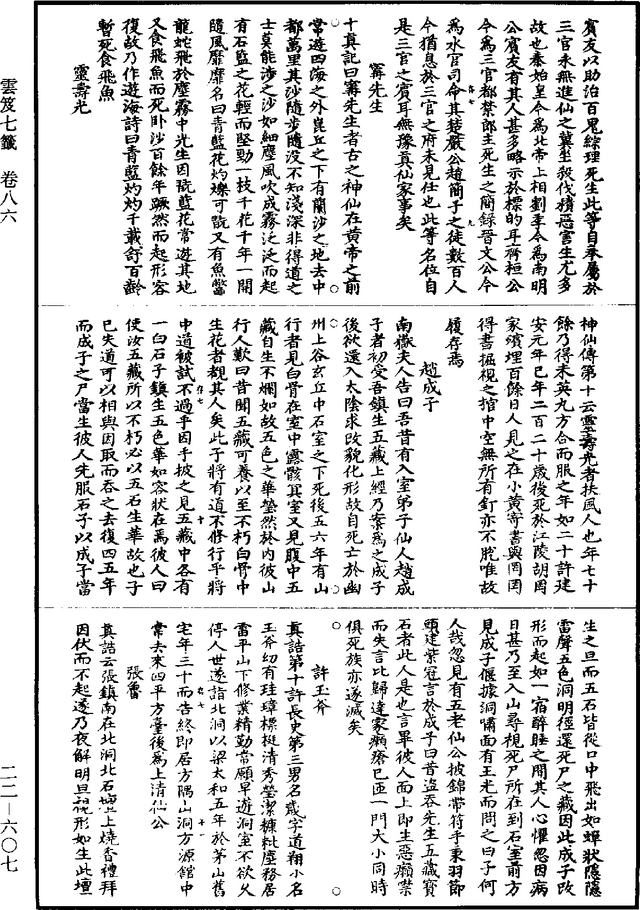 賓友以助治百鬼綜理死生此等自奉屬於
三官永無進仙之冀坐殺伐積惡害生尤多
故也秦始皇今為北帝上相劉季今為南明
公賓友有其人甚多略示於標的耳齊桓公
今為三官都禁郎主死生之簡錄晉文公今
為水官司命其楚嚴公趙簡子之徒數百人
今猶息於三官之府未見任也此等名位自
是三官之賓耳無豫真仙家事矣
甯先生
十真記曰甯先生者古之神仙在黃帝之前
常遊四海之外崑丘之下有蘭沙之地去中
都萬里其沙隨步隨沒不知淺深非得道之
士莫能涉之沙如細塵風吹成霧泛泛而起
有石藍之花輕而堅勁一枝千花千年一開
隨風靡靡名曰青藍花灼爍可翫又有魚鱉
龍蛇飛於塵霧中先生因翫藍花常遊其地
又食飛魚而死卧沙百餘年蹶然而起形容
復故乃作遊海詩曰青藍灼灼千載舒百齡
暫死食飛魚
靈壽光
神仙傳第十云靈壽光者扶風人也年七十
餘乃得朱英九方合而服之年如二十許建
安元年已年二百二十歲後死於江陵胡罔
家殯埋百餘日人見之在小黃寄書與罔罔
得書掘視之棺中空無所有釘亦不脫唯故
履存焉
趙成子
南嶽夫人告曰吾昔有入室弟子仙人趙成
子者初受吾鎮生五藏上經乃案為之成子
後欲還入太陰求改貌化形故自死亡於幽
州上谷玄丘中石室之下死後五六年有山
行者見白骨在室中露骸冥室又見腹中五
藏自生不爛如故五色之華瑩然於內彼山
行人歎曰昔聞五藏可養以至不朽白骨中
生花者覩其人矣此子將有道不修行乎將
中道被試不過乎因手披之見五藏中各有
一白石子鎮生五色華如容狀在焉彼人曰
使汝五藏所以不朽必以五石生華故也子
已失道可以相與因取而吞之去復四五年
而成子之尸當生彼人先服石子以成子當
生之旦而五石皆從口中飛出如蟬狀隱隱
雷聲五色洞明徑還死尸之藏因此成子改
形而起如一宿醉睡之間其人心懼忽因病
日甚乃至入山尋視死尸所在到石室前方
見成子偃據洞嘯面有玉光而問之曰子何
人哉忽見有五老仙公披錦帶符手秉羽節
頭建紫冠言於成子曰昔盜吞先生五藏寶
石者此人是也言畢彼人面上即生惡癩噤
而失言比歸達家癩瘡已匝一門大小同時
俱死族亦遂滅矣
許玉斧
真誥第十許長史第三男名翽字道翔小名
玉斧幼有珪璋標挺清秀瑩潔糠粃塵務居
雷平山下修業精勤常願早遊洞室不欲久
停人世遂詣北洞以梁太和五年於茅山舊
宅年三十而告終即居方隅山洞方源館中
常去來四平方臺後為上清仙公
張魯
真誥云張鎮南在北洞北石壇上燒香禮拜
因伏而不起遂乃夜解明旦視形如生此壇
雲笈七籤 卷八六
二二—六〇七